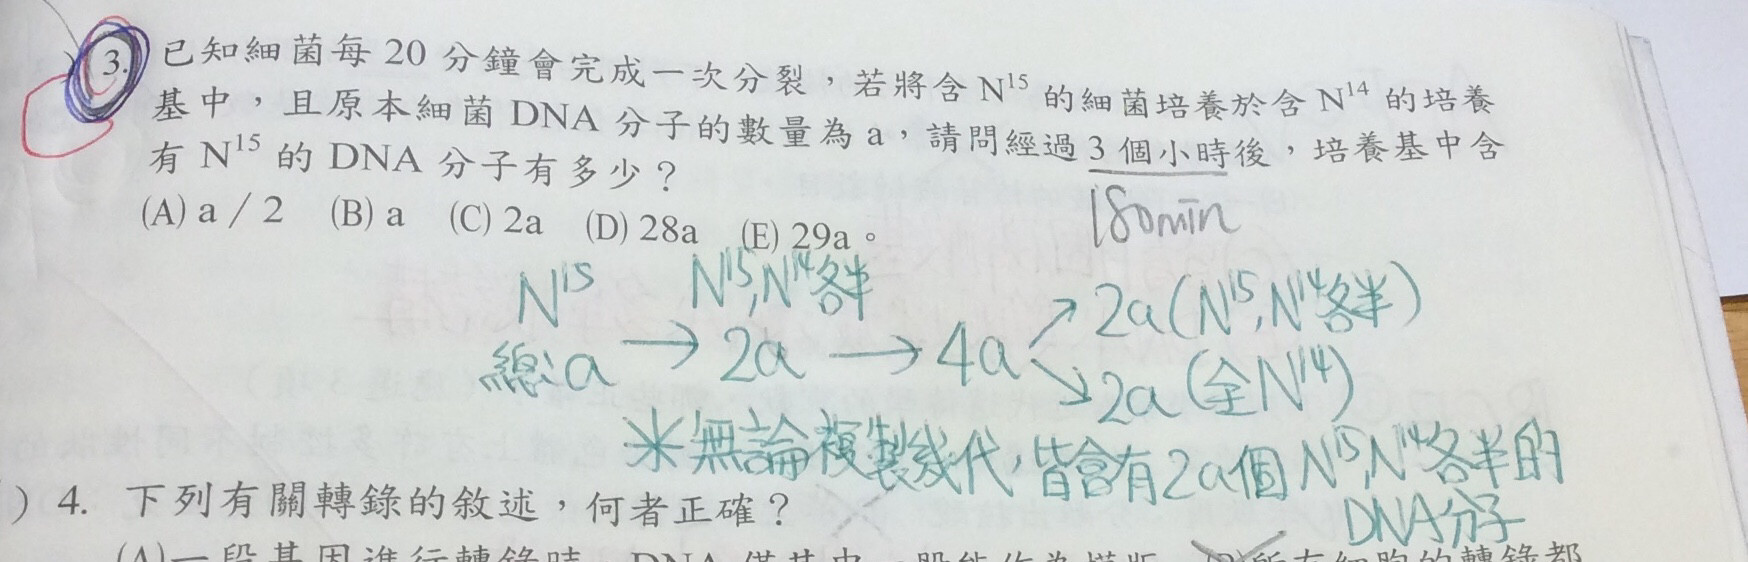 3. 已知細菌每 20 分鐘會完成一次分裂，若將含 N¹⁵ 的細菌培養於含 N¹⁴ 的培養
基中，且原本細菌 DNA 分子的數量為 a，請問經過 3 個小時後，培養基中含
有 N¹⁵ 的 DNA 分子有多少？
180min
(A) a / 2 (B) a (C) 2a (D) 28a (E) 29a。
N¹⁵ N¹⁵,N¹⁴各半
總:a → 2a → 4a
↗ 2a(N¹⁵,N¹⁴各半)
↘ 2a(全N¹⁴)
※無論複製幾代，皆會有2a個N¹⁵,N¹⁴各半的
DNA分子
) 4. 下列有關轉錄的敘述，何者正確？
(A)一段基因進行轉錄時，DNA 僅其中一股能作為模版 (B)所有細胞的轉錄都